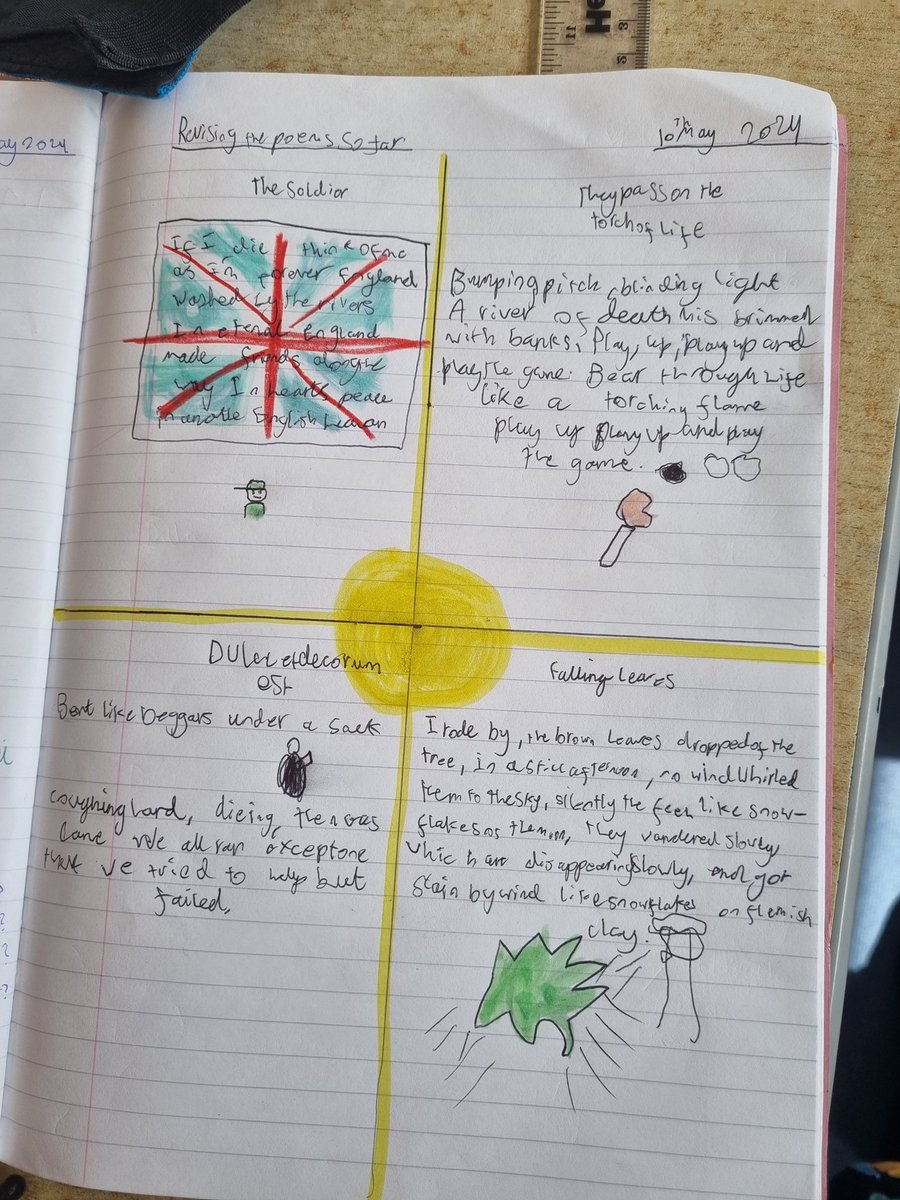 ay 2024
Revising the poems so far
10Th May 2024
The Soldior
If I die think of me
as I'm forever England
washed by the rivers
In eternal England
made friends along the
way In hearts peace
in an the English heaven
They pass on the
torch of Life
Bumping pitch, blinding light
A river of death his brimmed
with banks, Play, up, play up and
play the game. Bear through Life
like a torching flame
play up play up and play
the game.
Dulce et decorum
est
Bent like beggars under a sack
coughing hard, dieing, then gas
came We all ran exceptone
that we tried to help but
failed.
falling leaves
I rode by, the brown leaves dropped of the
tree, in a still afternoon, no wind whirled
them to the sky, silently the feel like snow-
flakes as the noon, they wandered slowly
which are disappearing slowly, and got
slain by wind like snowflakes on flemish
clay.
11
He